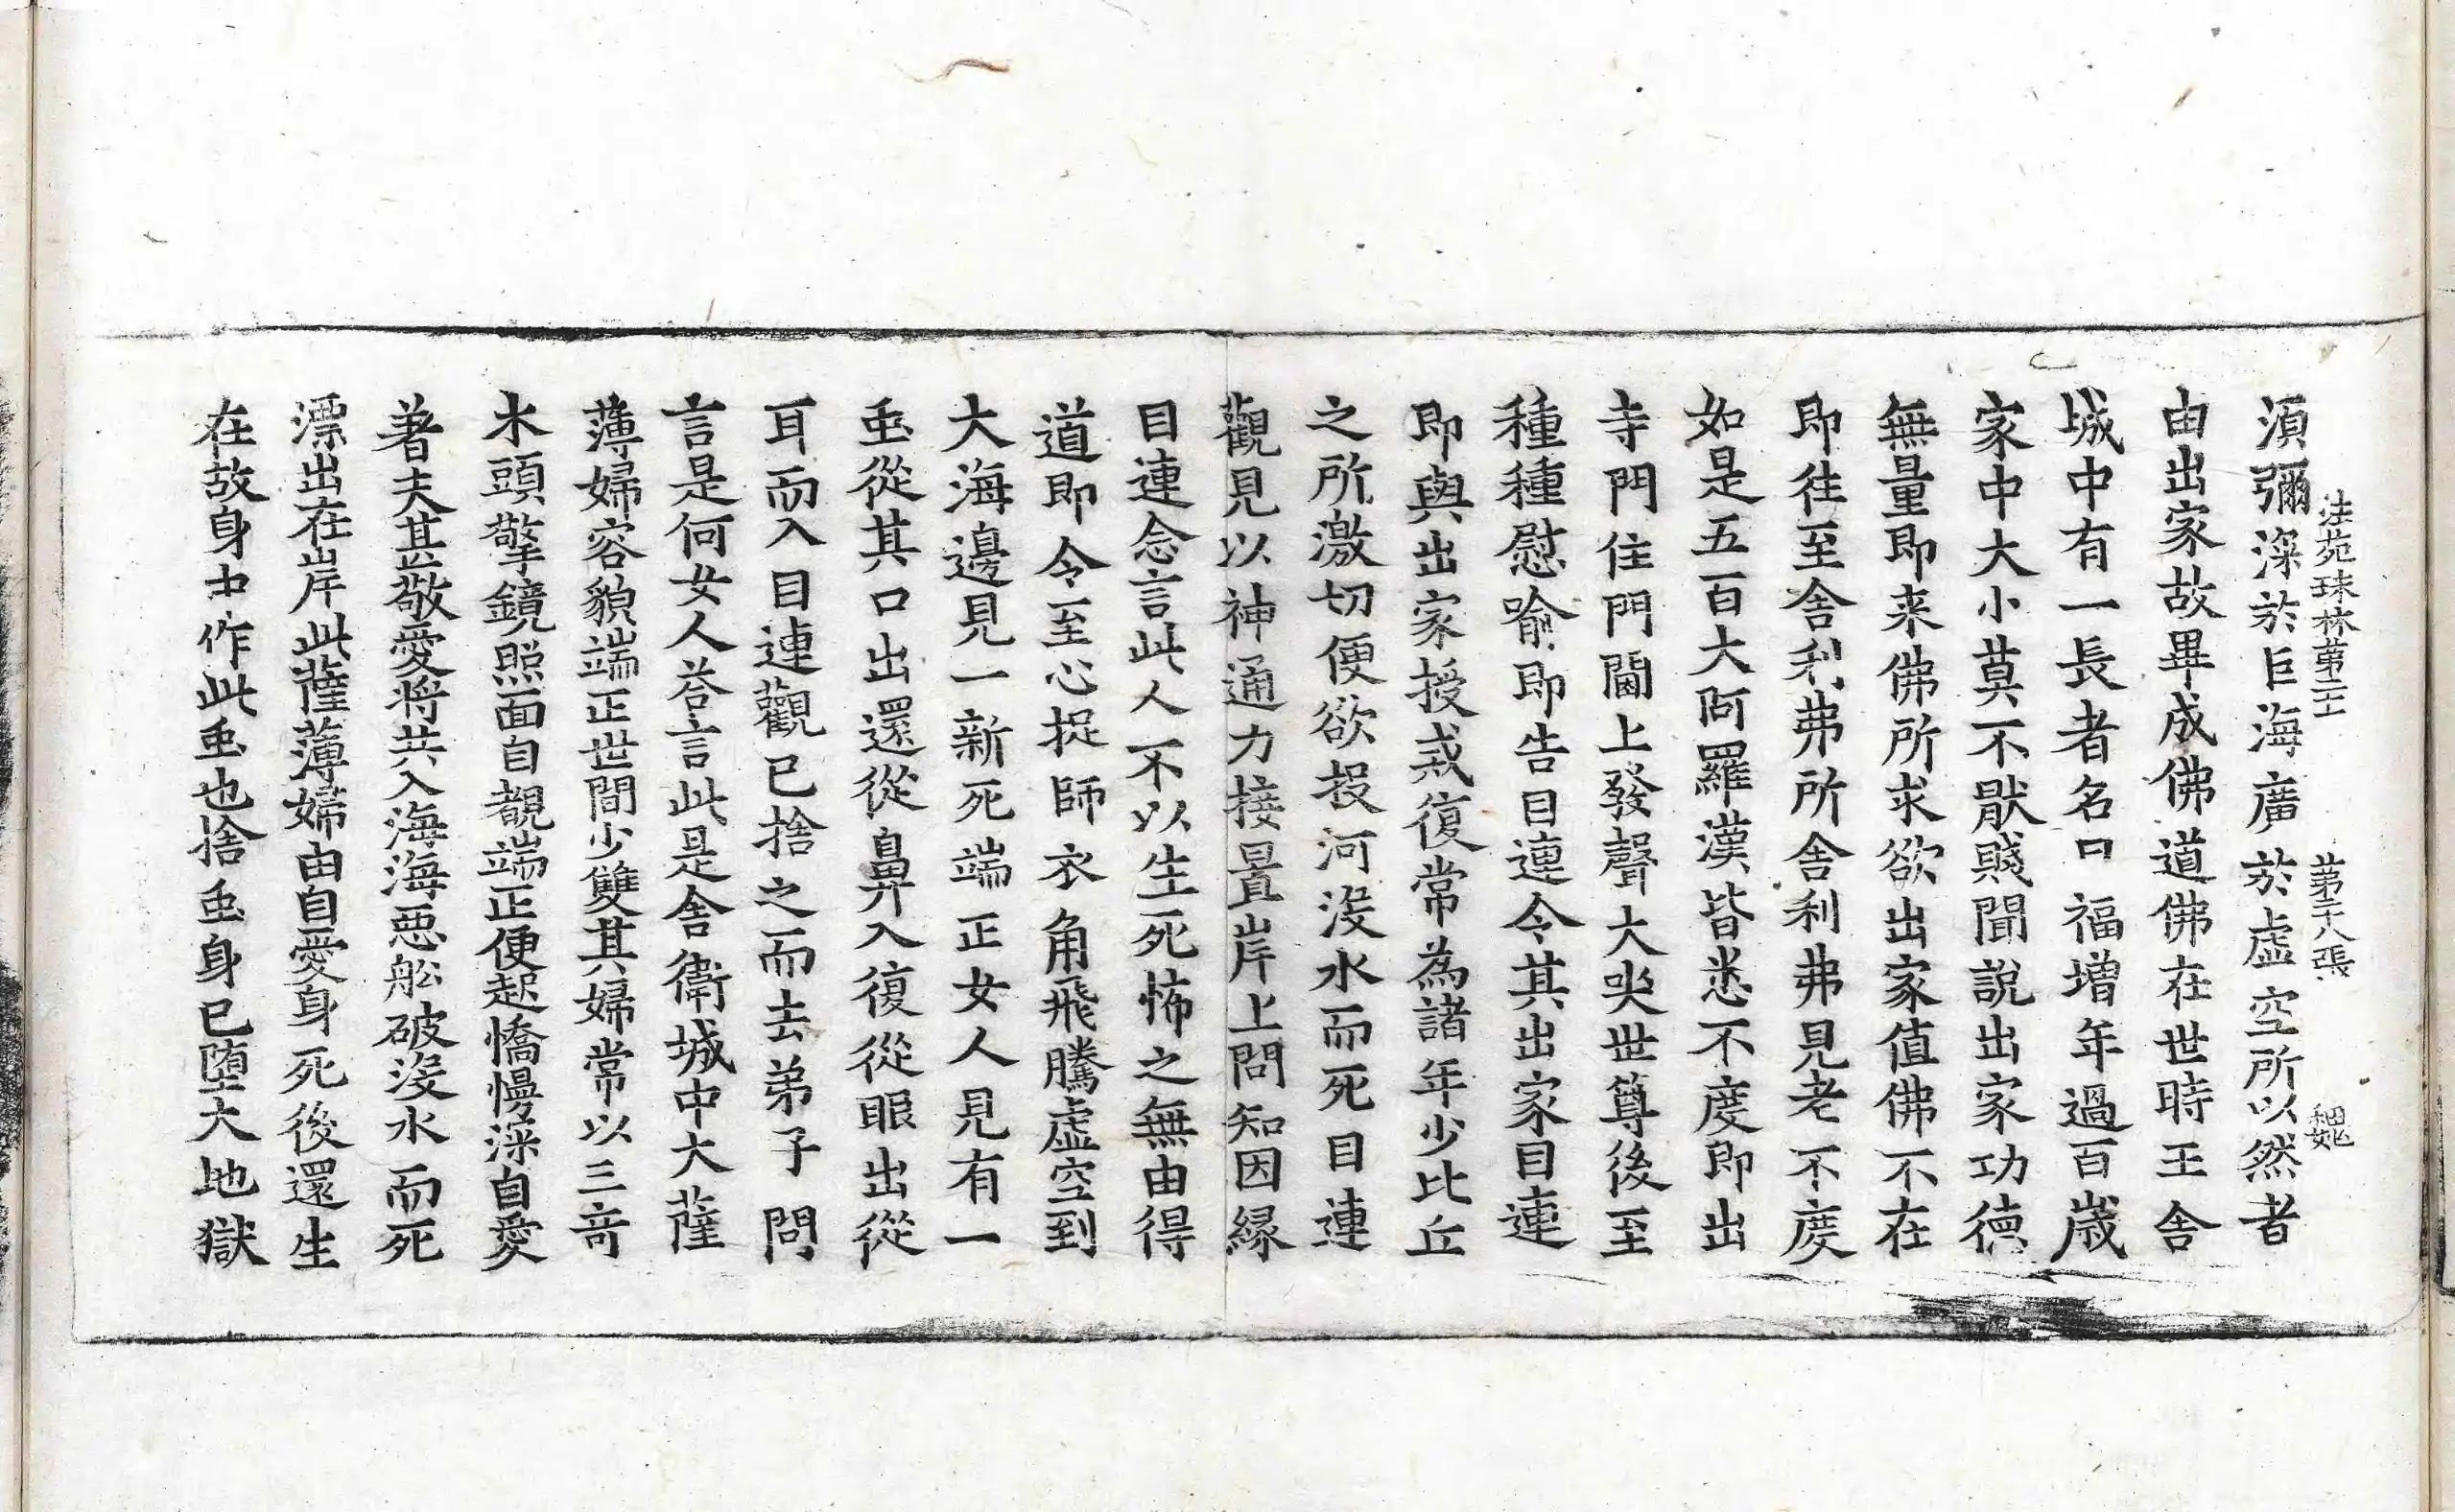 法苑珠林第二十二 第二十八張
須彌深於巨海廣於虛空所以然者
由出家故畢成佛道佛在世時王舍
城中有一長者名曰福增年過百歲
家中大小莫不猒賤聞說出家功德
無量即来佛所求欲出家值佛不在
即往至舍利弗所舍利弗見老不度
如是五百大阿羅漢皆悉不度即出
寺門住門閫上發聲大哭世尊後至
種種慰喻即告目連令其出家目連
即與出家授戒復常為諸年少比丘
之所激切便欲投河沒水而死目連
觀見以神通力接置岸上問知因緣
目連念言此人不以生死怖之無由得
道即令至心捉師衣角飛騰虛空到
大海邊見一新死端正女人見有一
䖝從其口出還從鼻入復從眼出從
耳而入目連觀已捨之而去弟子問
言是何女人荅言此是舍衛城中大薩
薄婦容貌端正世間少雙其婦常以三奇
木頭擎鏡照面自覩端正便起憍慢深自愛
著夫甚敬愛將共入海海惡舩破沒水而死
漂出在岸此薩薄婦由自愛身死後還生
在故身中作此䖝也捨䖝身已墮大地獄